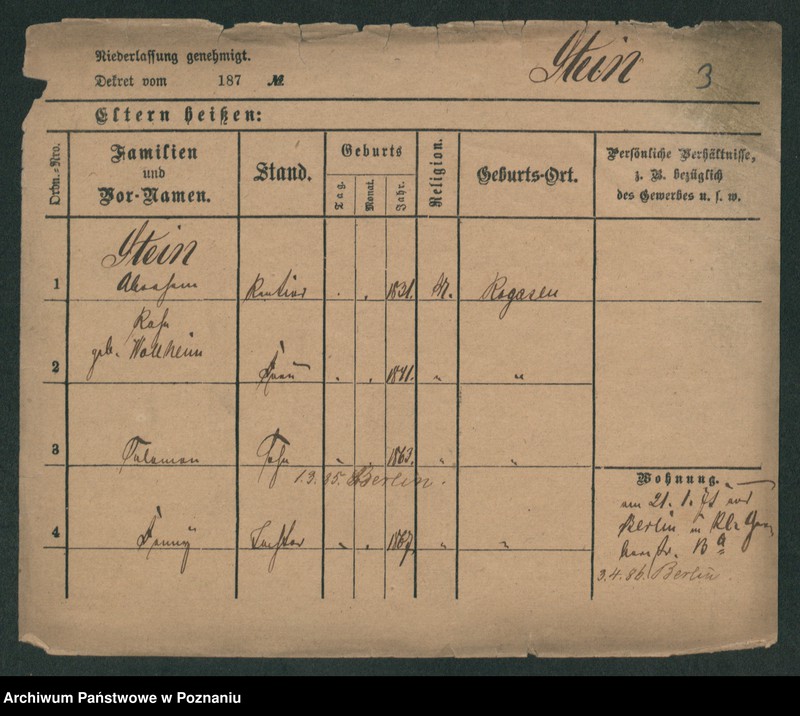 Niederlassung genehmigt.
Dekret vom 187 №
Stein 3
Eltern heißen:
Ordn.-Nro.
Familien
und
Vor-Namen.
Stand.
Geburts
Tag.
Monat.
Jahr.
Religion.
Geburts-Ort.
Persönliche Verhältnisse,
z. B. bezüglich
des Gewerbes u. s. w.
Stein
1 Abraham Rentier 1831. Rogasen
geb. Wollheim
2 Frau " " 1841. " "
3 Salomon Sohn " " 1863. " "
1.3.85. Berlin.
Wohnung.
am 21. 1. 71 von
Berlin
4 Fanny Tochter " " 1867. " "
3.4.86. Berlin.
Archiwum Państwowe w Poznaniu